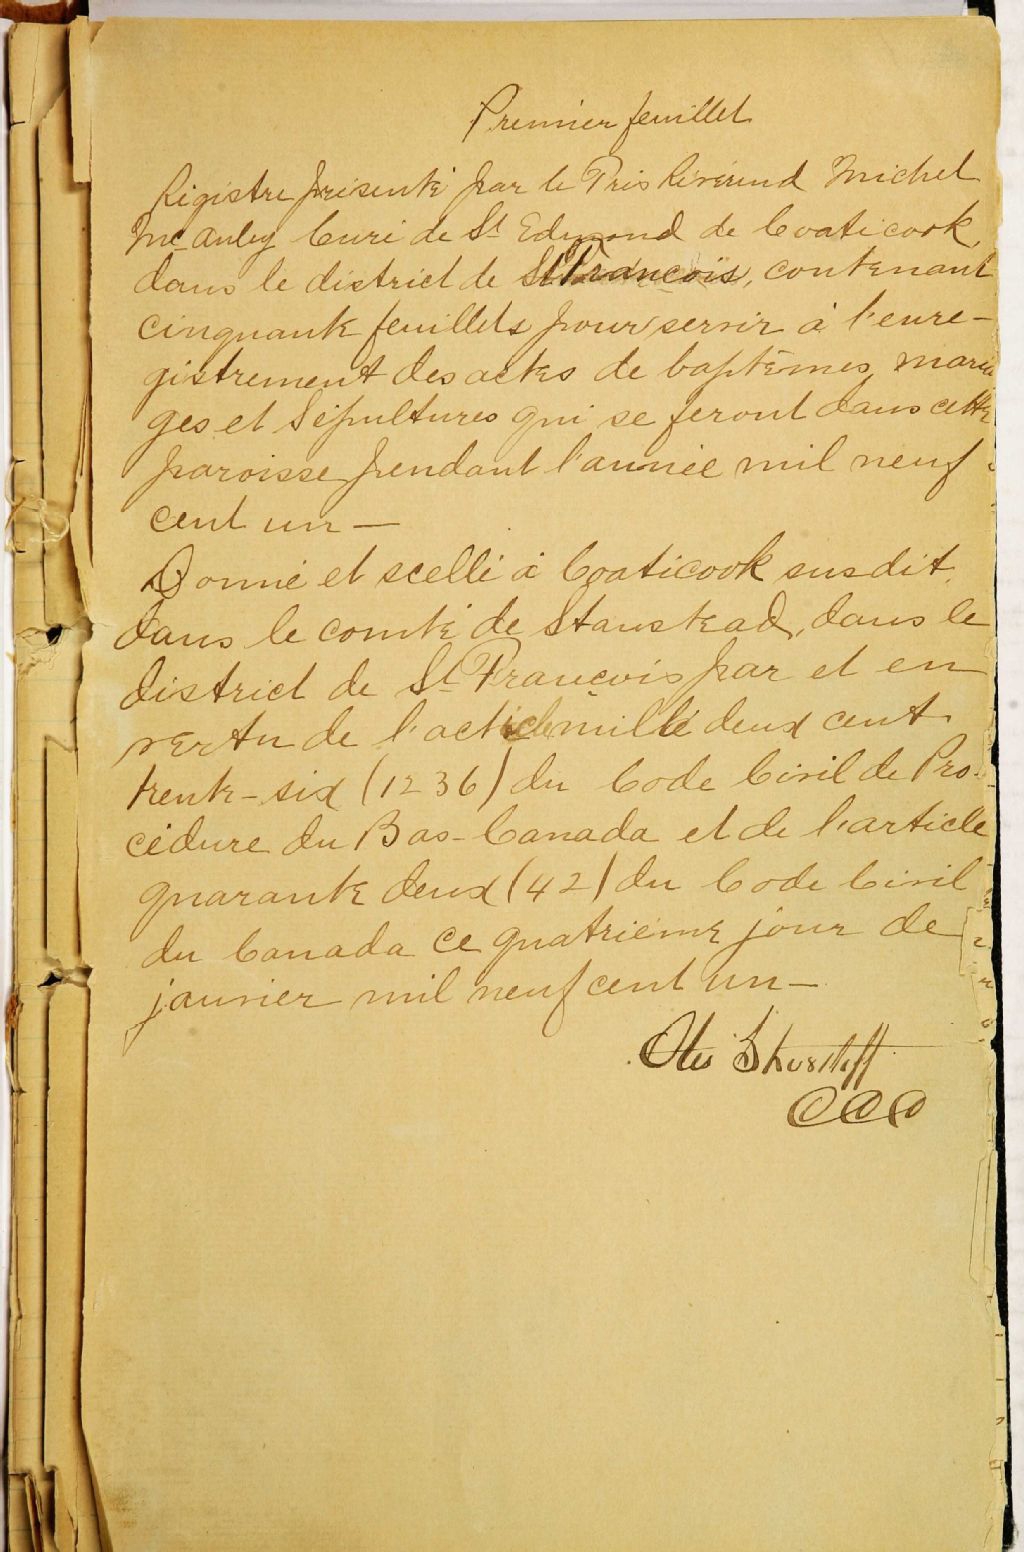 Premier feuillet
Régistre présenté par le Très Révérend Michel
McAuley Curé de St Edmond de Coaticook,
dans le district de St François, contenant
cinquante feuillets pour servir à l'enre-
gistrement des actes de baptêmes, maria
ges et Sépultures qui se feront dans cette
paroisse pendant l'année mil neuf
cent un —
Donné et scellé à Coaticook susdit,
dans le comté de Stanstead, dans le
district de St François par et en
vertu de l'article mille deux cent
trente-six (1236) du Code Civil de Pro-
cédure du Bas-Canada et de l'article
quarante deux (42) du Code Civil
du Canada ce quatrième jour de
janvier mil neuf cent un —
Otis Shurtleff
CCCD